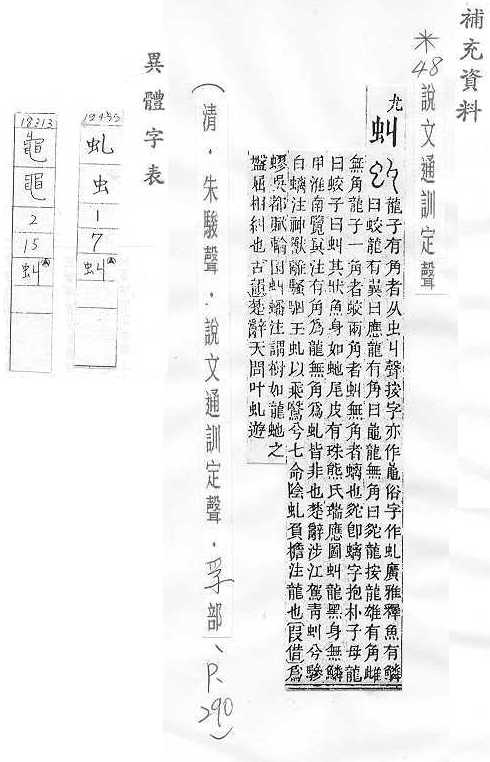 補充資料
＊48 說文通訓定聲
尤
虯 龍子有角者从虫丩聲按字亦作𪓟俗字作虬廣雅釋魚有鱗
曰蛟龍有翼曰應龍有角曰𪓟龍無角曰䖝龍按龍雄有角雌
無角龍子一角者蛟兩角者虯無角者螭也䖝卽螭字抱朴子母龍
曰蛟子曰虯其狀魚身如蛇尾皮有珠熊氏瑞應圖虯龍黑身無鱗
甲淮南覽冥注有角爲龍無角爲虬皆非也楚辭涉江駕靑虯兮驂
白螭注神獸離騷駟玉虬以乘鷖兮七命陰虬負檐注龍也假借爲
蟉吳都賦輪囷虯蟠注謂樹如龍蛇之
盤屈相糾也古韻楚辭天問叶虬遊
（清．朱駿聲．說文通訓定聲．孚部、P.290）
異體字表
虬
虫
1
7
虯
18313
黽
2
15
虯